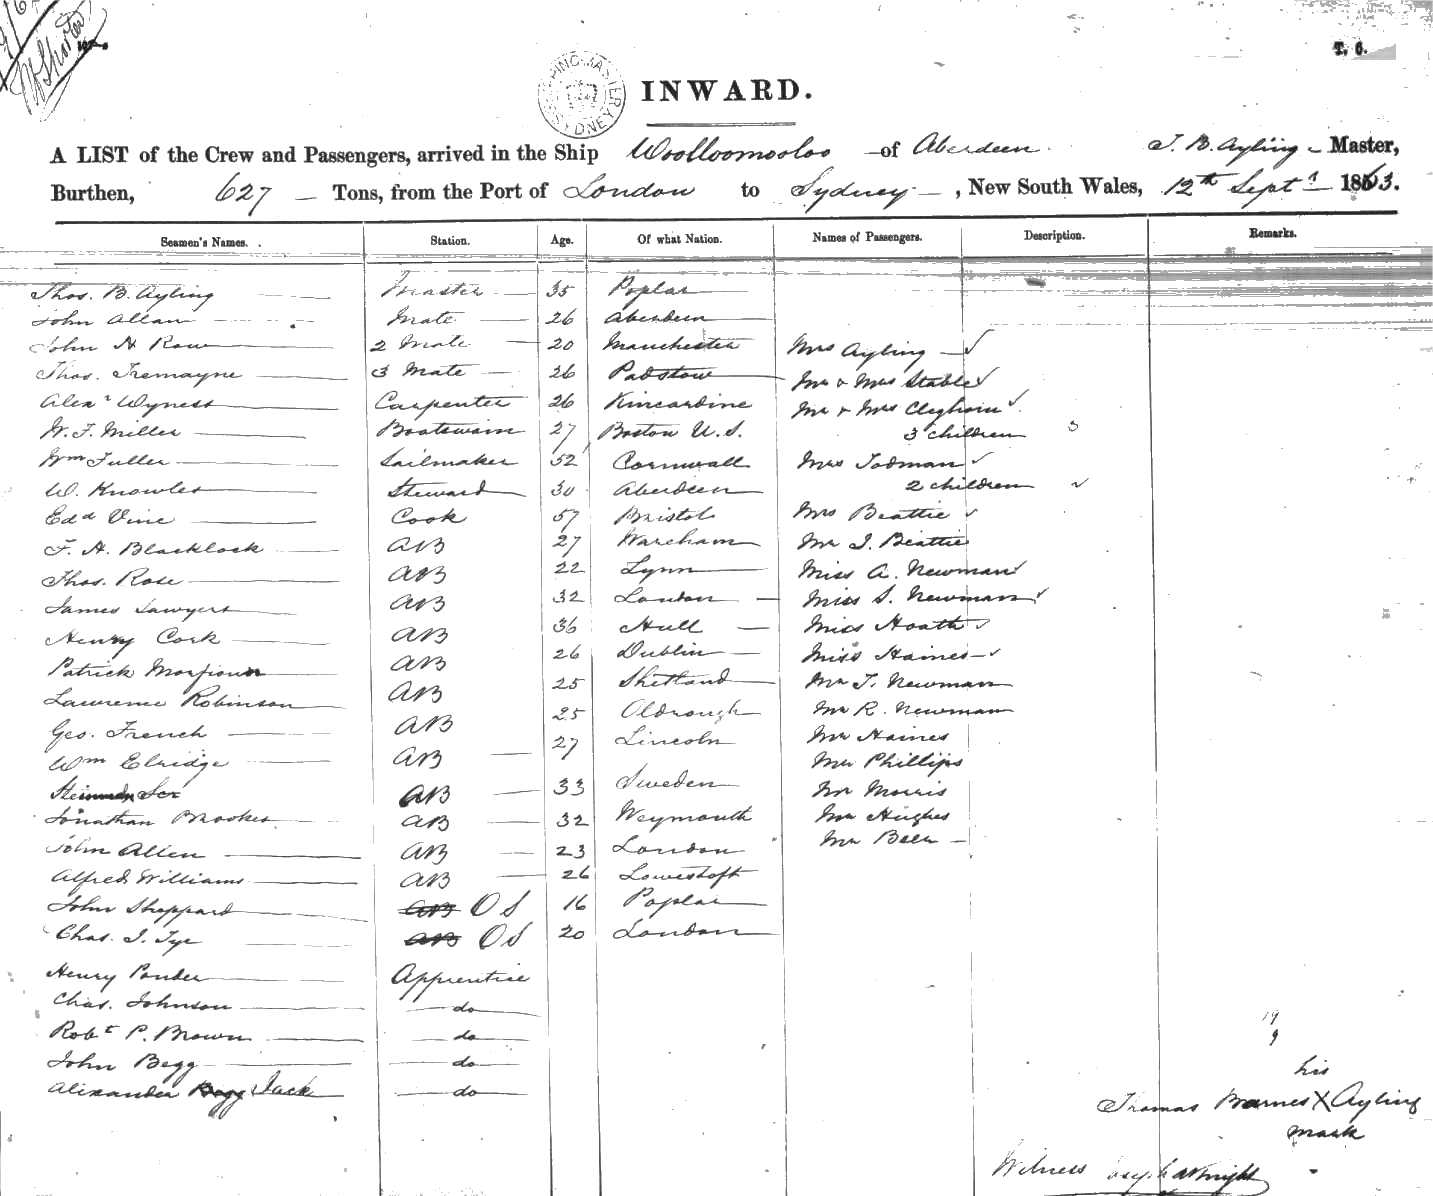 T. 6.
SHIPPING MASTER SYDNEY
INWARD.
A LIST of the Crew and Passengers, arrived in the Ship Woolloomooloo of Aberdeen J. B. Ayling Master,
Burthen, 627 Tons, from the Port of London to Sydney, New South Wales, 12th Septr 1863.
Seamen's Names. Station. Age. Of what Nation. Names of Passengers. Description. Remarks.
Thos. B. Ayling Master 35 Poplar
John Allan Mate 26 Aberdeen
John H Row 2 Mate 20 Manchester Mrs Ayling
Thos. Tremayne 3 Mate 26 Padstow Mr & Mrs Stable
Alexr Wyness Carpenter 26 Kincardine Mr & Mrs Cleghorn
W. F. Miller Boatswain 27 Boston U.S. 3 children 3
Wm Fuller Sailmaker 52 Cornwall Mrs Todman
W. Knowles Steward 30 Aberdeen 2 children
Edd Vine Cook 57 Bristol Mrs Beattie
F. H. Blacklock AB 27 Wareham Mr J. Beattie
Thos. Rose AB 22 Lynn Miss A. Newman
James Sawyers AB 32 London Miss S. Newman
Henry Cork AB 36 Hull Miss Hoath
Patrick AB 26 Dublin Miss Haines
Lawrence Robinson AB 25 Shetland Mr T. Newman
Geo. French AB 25 Mr R. Newman
Wm Elridge AB 27 Lincoln Mr Haines
Mr Phillips
AB 33 Sweden Mr Morris
Jonathan Brookes AB 32 Weymouth Mr Hughes
John Allen AB 23 London Mr
Alfred Williams AB 26 Lowestoft
John Sheppard AB OS 16 Poplar
Chas. J. Tye AB OS 20 London
Henry Ponder Apprentice
Chas. Johnson do
Robt P. Brown do
John Begg do
Alexander Begg Jack do
19
9
his
Thomas Barnes X Ayling
mark
Witness